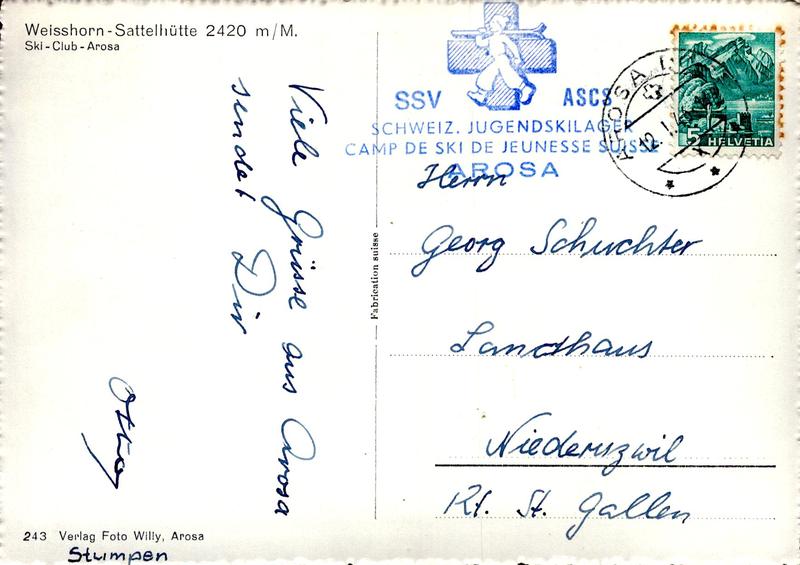 Weisshorn-Sattelhütte 2420 m/M.
Ski-Club-Arosa
Viele Grüsse aus Arosa
sendet Dir
243 Verlag Foto Willy, Arosa
Stumpen
Fabrication suisse
SSV ASCS
SCHWEIZ. JUGENDSKILAGER
CAMP DE SKI DE JEUNESSE SUISSE
AROSA
AROSA
12. I.
5 HELVETIA
Herrn
Georg Schuchter
Landhaus
Niederuzwil
Kt. St. Gallen